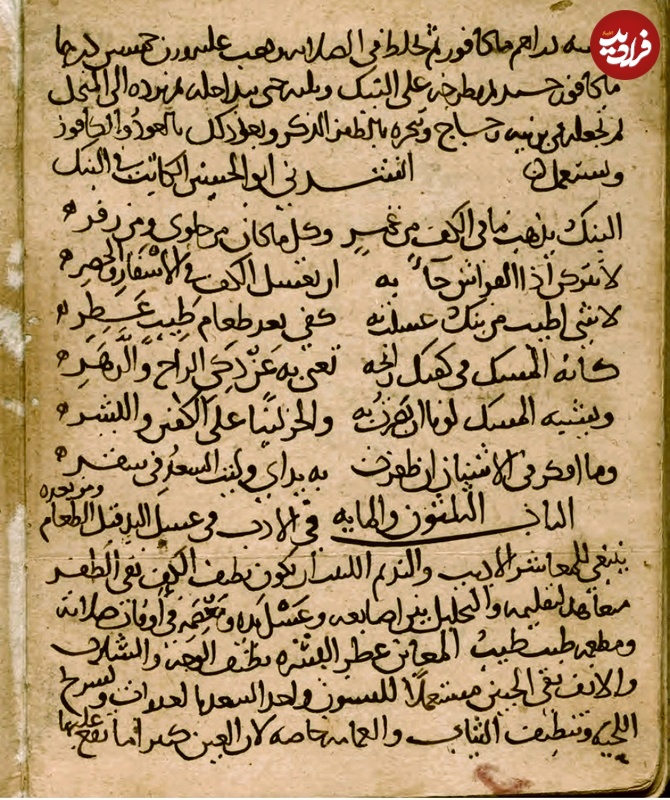 فرادید
دراهم ما كافور ثم يخلط في الصلايه وهب عليه وزن خمسين درهما
ما كافور جيد ثم يطرحه على البنك ثم يرده الى المنخل
ثم تجعله في برنيه زجاج وتبخره بالظفر الذكر وبعد ذلك بالعود والكافور
ويستعمل انشدني ابو الحسين الكاتب في البنك
البنك يذهب ما في الكف من غمر وكل ما كان من حلوى ومن زفر
لا تتركن اذا الفراش جاء به ان تغسل الكف في الاسفار والحضر
لا شي اطيب من بنك غسلت به كفي بعد طعام طيب عطر
كانه المسك في كفيك رائحه تغنى به عن ذكي الراح والزهر
ويشبه المسك لونا ان ظفرت به والخز لينا على الكفين والبشر
وما افكر في الاشنان ان ظفرت به يداي وليت السعد في سفر
الباب الثلثون والمايه في الادب في غسل اليد قبل الطعام ومن بعده
ينبغي للمعاشر الاديب والنديم اللبيب ان يكون نظيف الكف نقي الظفر
متعاهدا لتقليمه والتخليل بين اصابعه وغسل يده ومعصمه في اوقات صلاته
ومطعمه طيب المغابن عطر البشره نظيف الوجه والشارب
والانف نقي الجبين مستعملا للسنون واخذ السعد بالغدوات وتسريح
اللحيه وتنظيف الثياب والعمامه خاصه لان العين كثيرا ما تقع عليها